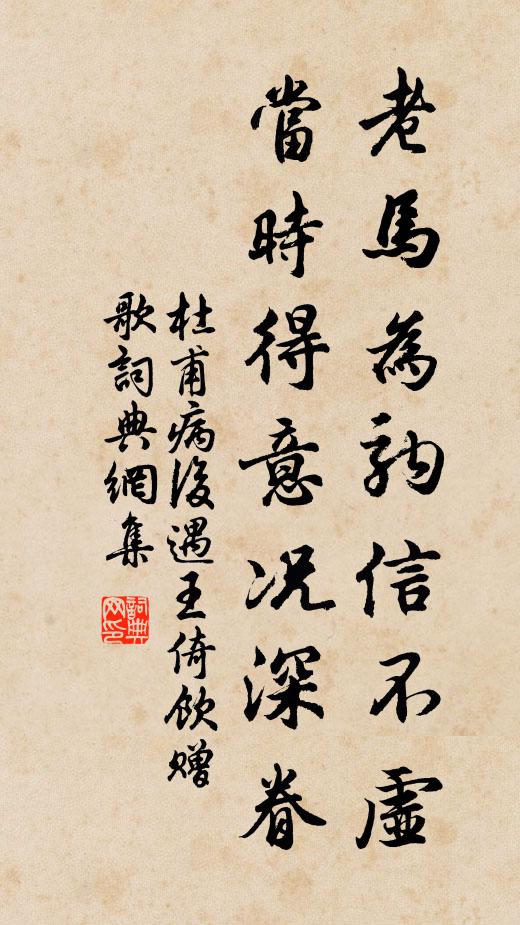 老馬為駒信不虛
當時得意況深眷
杜甫病後遇王倚飲贈
歌詞典網集
詞典网印